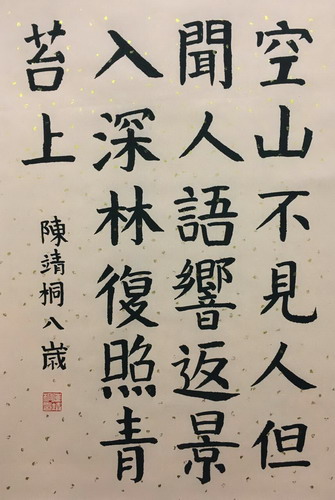 空山不見人但
聞人語響返景
入深林復照青
苔上
陳靖桐八歲